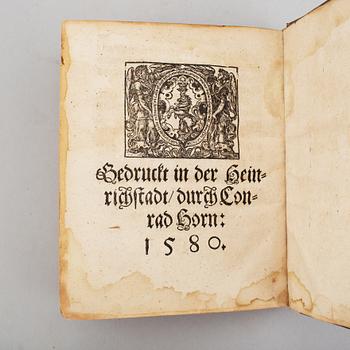 Gedruckt in der Hein-
richstadt/durch Con-
rad Horn:
1580.